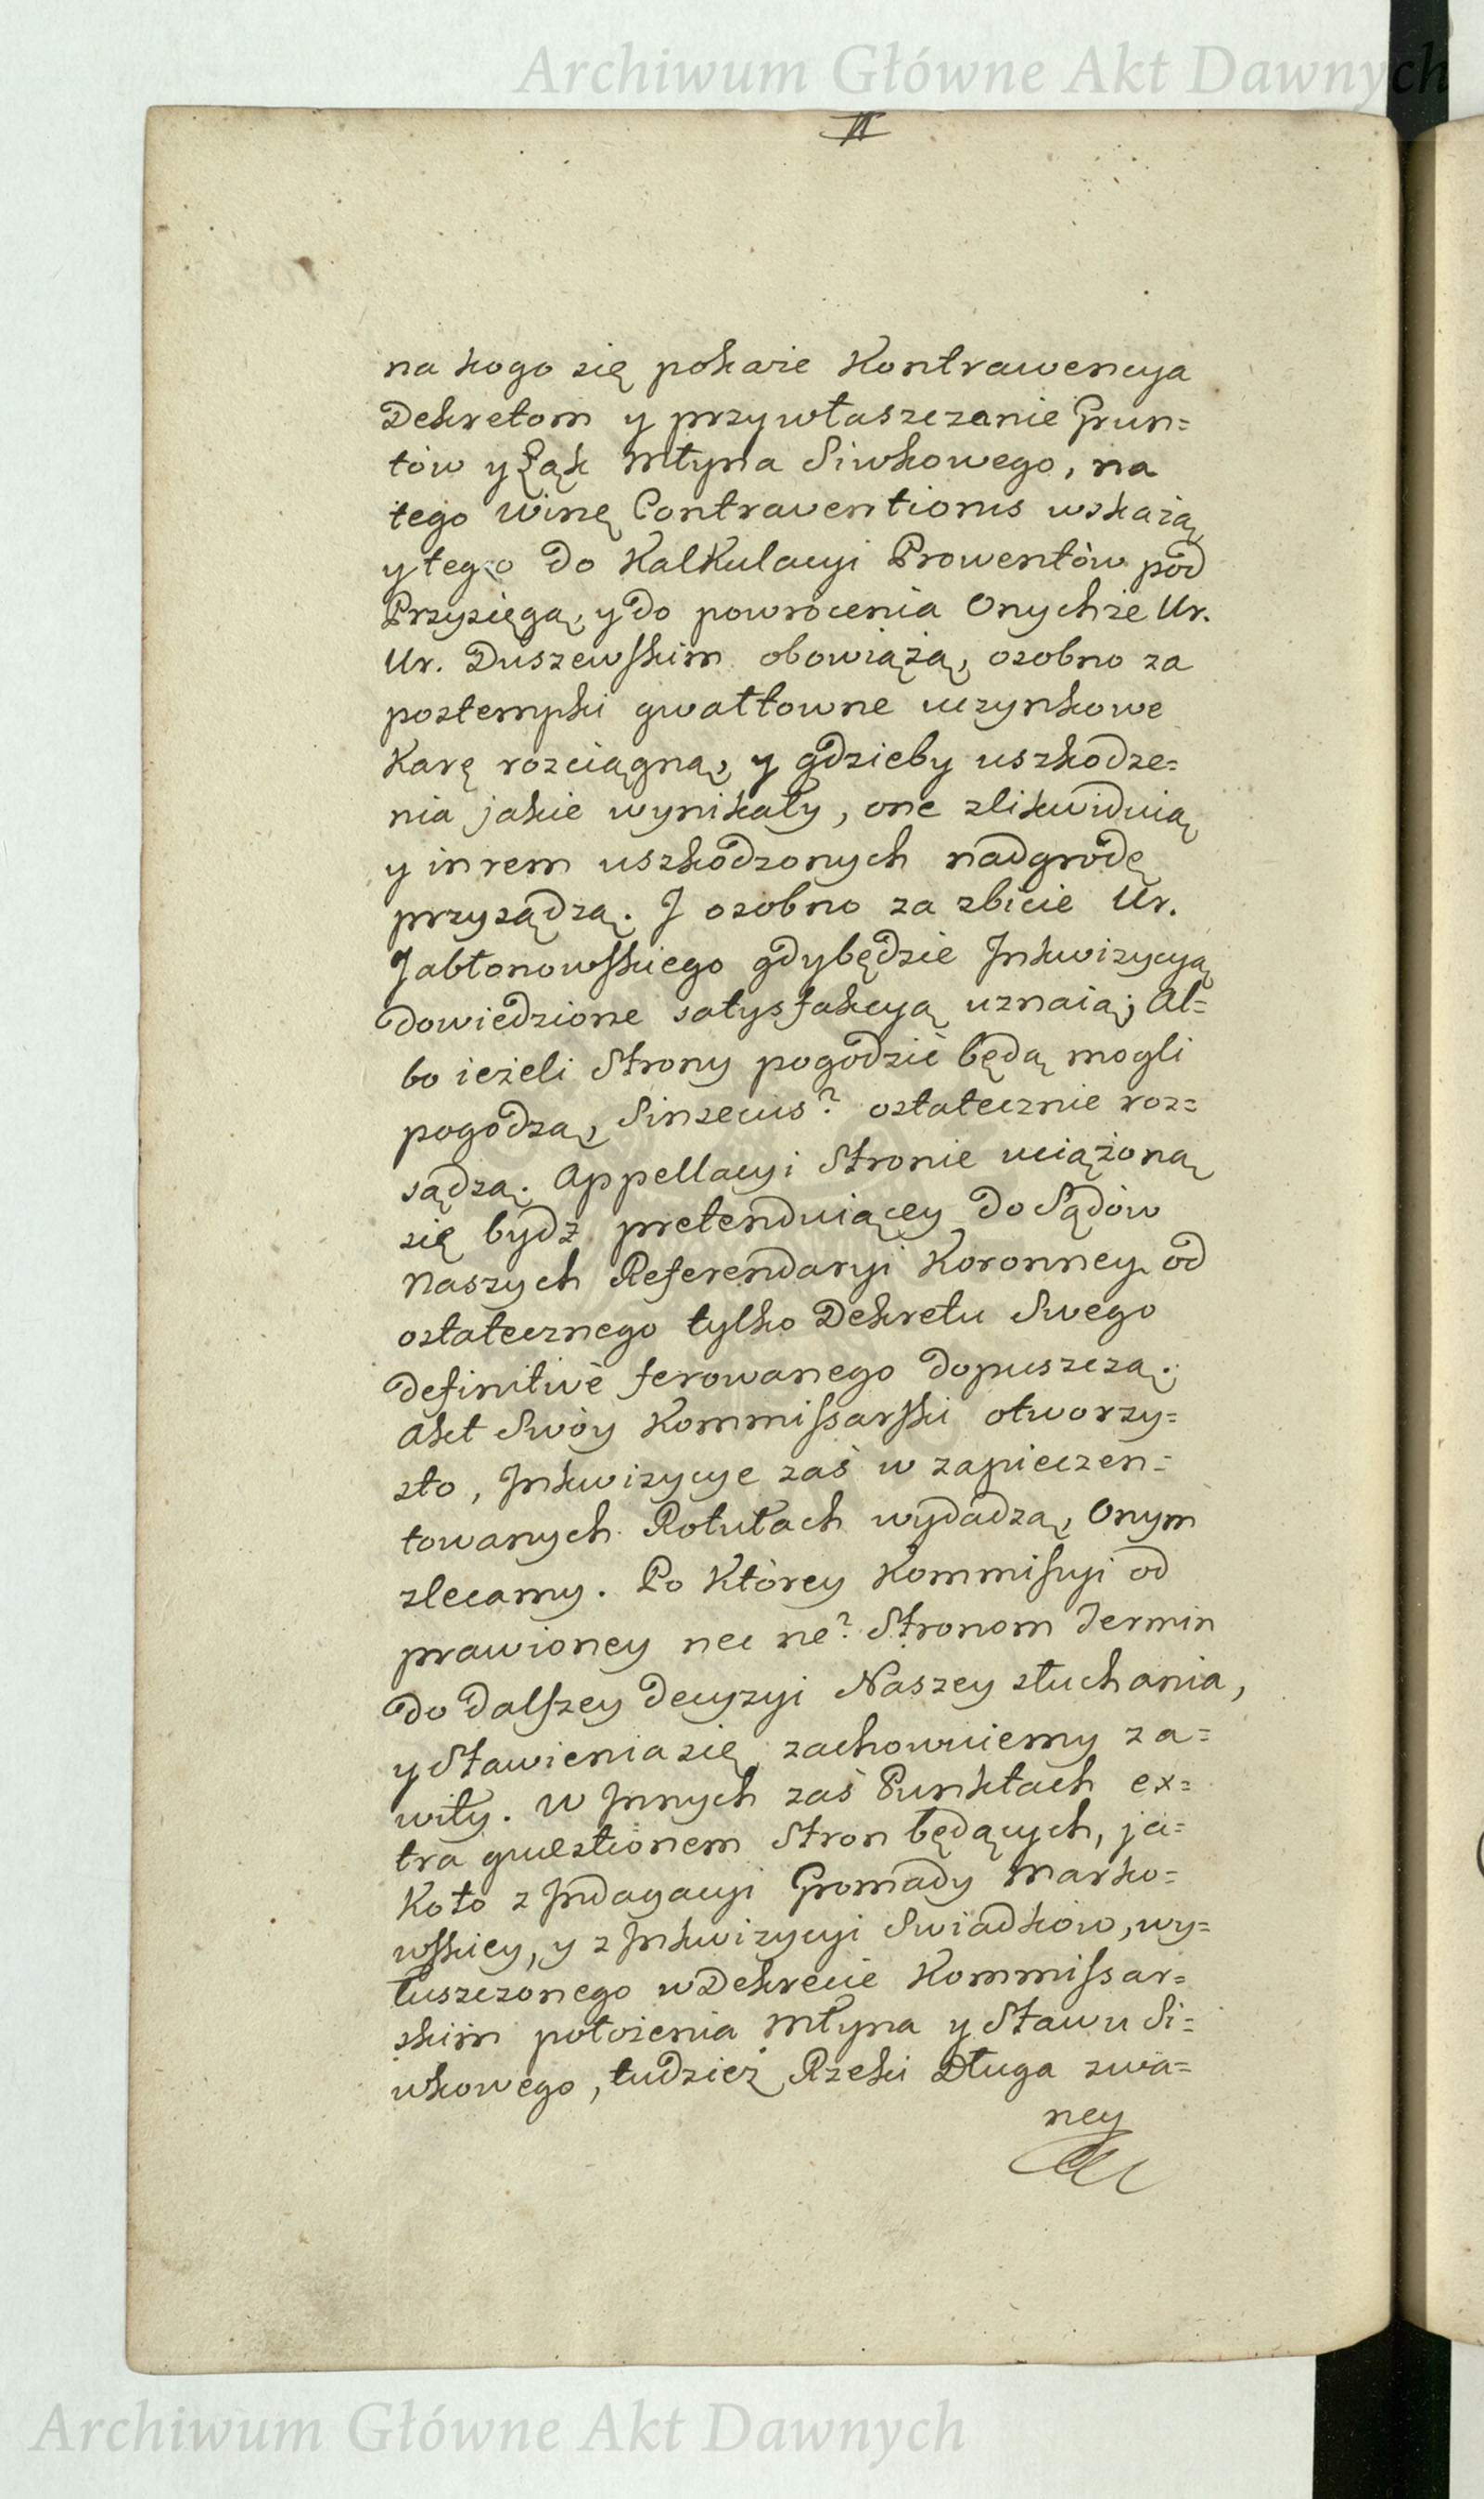 Archiwum Główne Akt Dawnych
na kogo się pokaże Kontrawencya
Dekretom y przywłaszczanie Grun=
tów y Łąk Młyna Siwkowego, na
tego winę Contraventionis wskażą
y tego do Kalkulacyi Prowentów pod
Przysięgą, y do powrócenia Onychże Ur.
Ur. Duszewskim obowiążą, osobno za
postempki gwałtowne uczynkowe
Karę rozciągną, y gdzieby uszkodze=
nia jakie wynikały, one zlikwiduią
y in rem uszkodzonych nadgrodę
przysądzą. J osobno za zbicie Ur.
Jabłonowskiego gdy będzie Jnkwizycyą
dowiedzione satysfakcyą uznaią; Al=
bo ieżeli Strony pogodzić będą mogli
pogodzą, Sinsecus? ostatecznie roz=
sądzą. Appellacyi Stronie uciążoną
się bydź pretenduiącey do Sądów
Naszych Referendaryi Koronney od
ostatecznego tylko Dekretu Swego
definitivè ferowanego dopuszczą.
Akt Swóy Kommissarski otworzy=
sto, Jnkwizycye zaś w zapieczen=
towanych Rotułach wydadzą, Onym
zlecamy. Po Którey Kommissyi od
prawioney nec ne? Stronom Termin
do dalszey decyzyi Naszey słuchania,
y Stawienia się zachowuiemy za=
wity. W Jnnych zaś Punktach ex=
tra quæstionem Stron będących, ja=
Koto z Jndagacyi Gromady Marko=
wskiey, y z Jnkwizycyi Swiadków, wy=
łuszczonego w Dekrecie Kommissar=
skim położenia Młyna y Stawu Si=
wkowego, tudzież Rzeki Długa zwa=
ney
Archiwum Główne Akt Dawnych